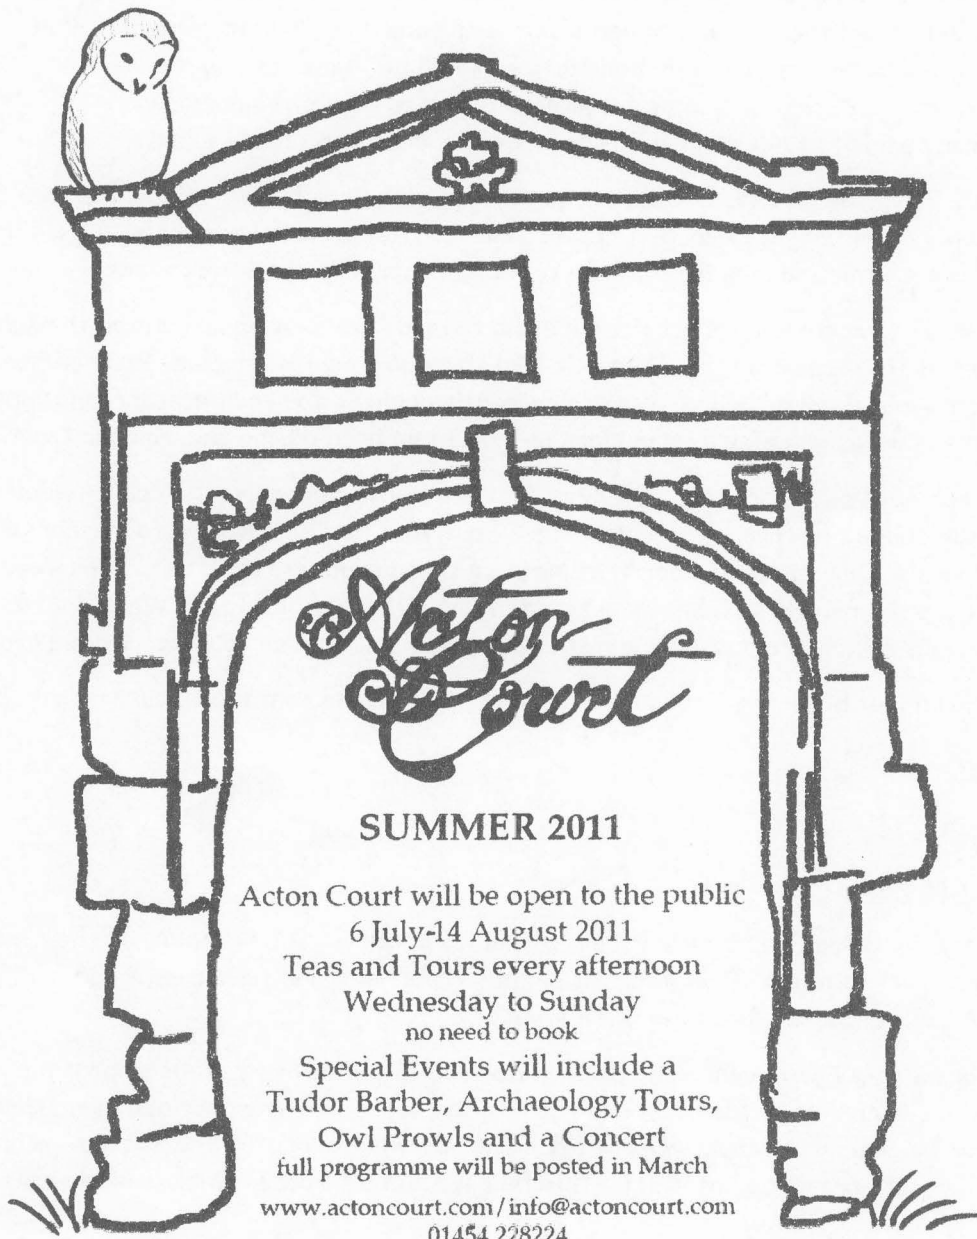 Acton
Court
SUMMER 2011
Acton Court will be open to the public
6 July-14 August 2011
Teas and Tours every afternoon
Wednesday to Sunday
no need to book
Special Events will include a
Tudor Barber, Archaeology Tours,
Owl Prowls and a Concert
full programme will be posted in March
www.actoncourt.com/info@actoncourt.com
01454 228224